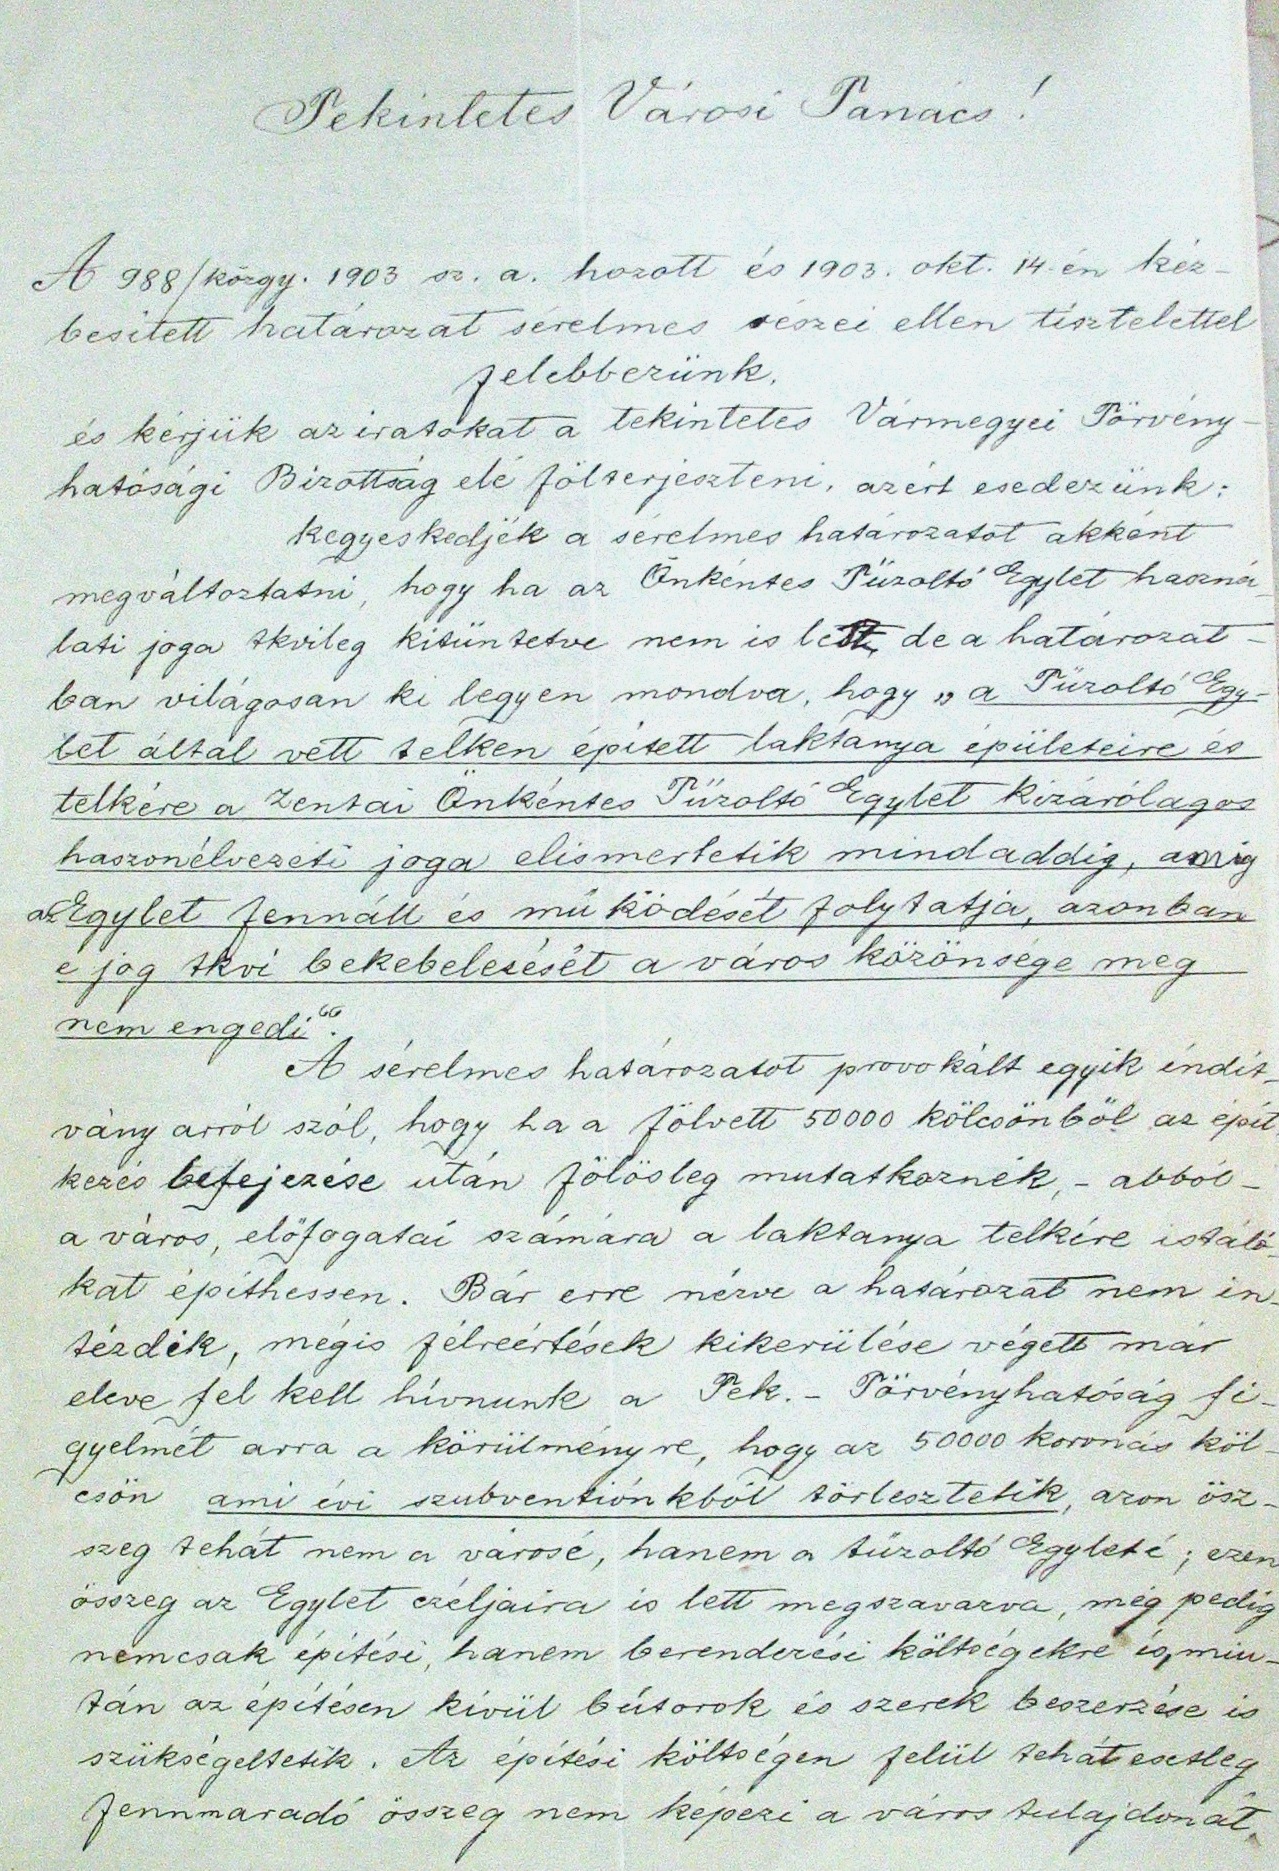 Tekintetes Városi Tanács!
A 988/közgy. 1903 sz. a. hozott és 1903. okt. 14-én kéz-
besitett határozat sérelmes részei ellen tisztelettel
felebbezünk,
és kérjük az iratokat a tekintetes Vármegyei Törvény-
hatósági Bizottság elé fölterjeszteni, azért esedezünk:
kegyeskedjék a sérelmes határozatot akként
megváltoztatni, hogy ha az Önkéntes Tüzoltó Egylet haszná-
lati joga tkvileg kitüntetve nem is lett, de a határozat-
ban világosan ki legyen mondva, hogy „a Tüzoltó Egy-
let által vett telken épitett laktanya épületeire és
telkére a Zentai Önkéntes Tüzoltó Egylet kizárólagos
haszonélvezeti joga elismertetik mindaddig, amig
az Egylet fennáll és működését folytatja, azonban
e jog tkvi bekebelezését a város közönsége meg
nem engedi“.
A sérelmes határozatot provokált egyik indit-
vány arról szól, hogy ha a fölvett 50000 kölcsönből az épit
kezés befejezése után fölösleg mutatkoznék, - abból -
a város, előfogatai számára a laktanya telkére istáló-
kat épithessen. Bár erre nézve a határozat nem in-
tézdik, mégis félreértések kikerülése végett már
eleve fel kell hívnunk a Tek. - Törvényhatóság fi-
gyelmét arra a körülményre, hogy az 50000 koronás köl-
csön ami évi szubventiónkból törlesztetik, azon ösz-
szeg tehát nem a városé, hanem a tűzoltó Egyleté; ezen
összeg az Egylet czéljaira is lett megszavazva, még pedig
nemcsak épitési, hanem berendezési költségekre is, miu-
tán az épitésen kívül bútorok és szerek beszerzése is
szükségeltetik. Az épitési költségen felül tehát esetleg
fennmaradó összeg nem képezi a város tulajdonát,